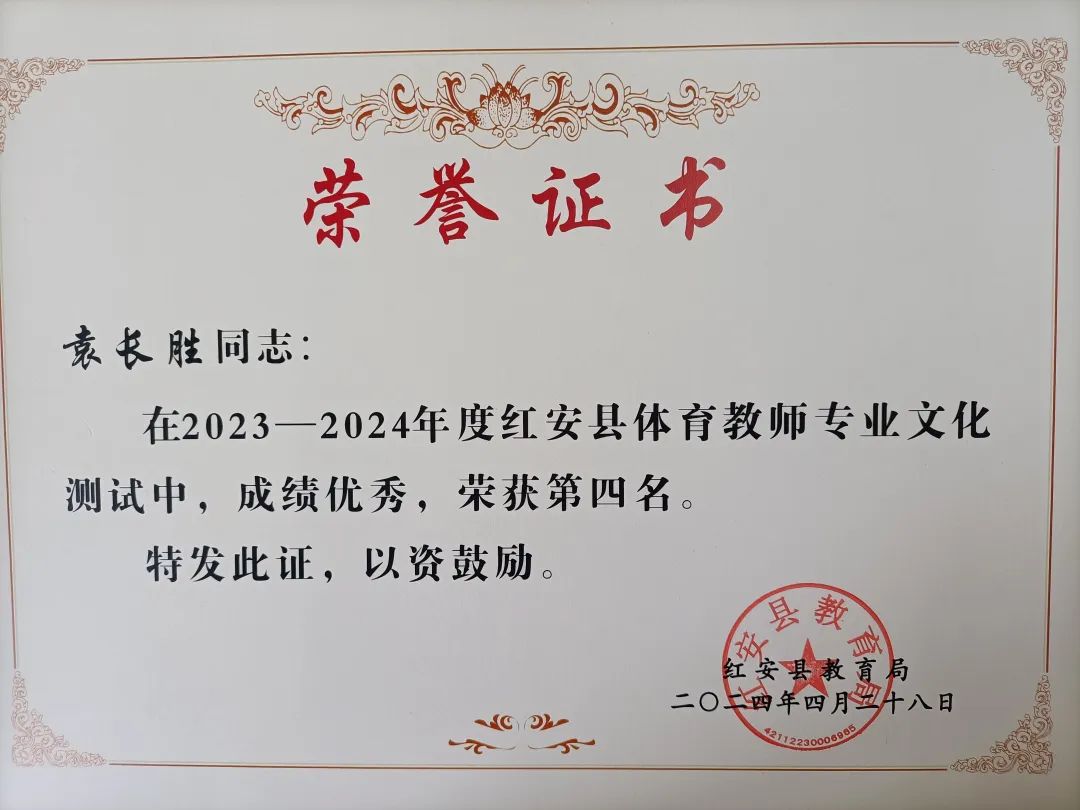 荣誉证书
袁长胜同志：
在2023—2024年度红安县体育教师专业文化
测试中，成绩优秀，荣获第四名。
特发此证，以资鼓励。
红安县教育局
红安县教育局
二〇二四年四月二十八日
42112230006985